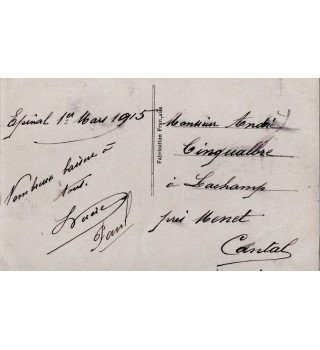 Epinal 1er Mars 1915
Nombreux baisers à
tous.
Fabrication Française
Monsieur André
Cinqualbre
à Lachamp
près Menet
Cantal